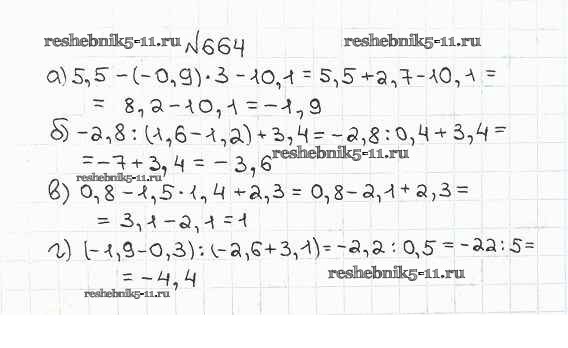 reshebnik5-11.ru №664 reshebnik5-11.ru
а) 5,5 - (-0,9)·3 - 10,1 = 5,5 + 2,7 - 10,1 =
= 8,2 - 10,1 = -1,9
б) -2,8 : (1,6 - 1,2) + 3,4 = -2,8 : 0,4 + 3,4 =
= -7 + 3,4 = -3,6 reshebnik5-11.ru
reshebnik5-11.ru
в) 0,8 - 1,5·1,4 + 2,3 = 0,8 - 2,1 + 2,3 =
= 3,1 - 2,1 = 1
г) (-1,9 - 0,3) : (-2,6 + 3,1) = -2,2 : 0,5 = -22 : 5 =
= -4,4 reshebnik5-11.ru
reshebnik5-11.ru